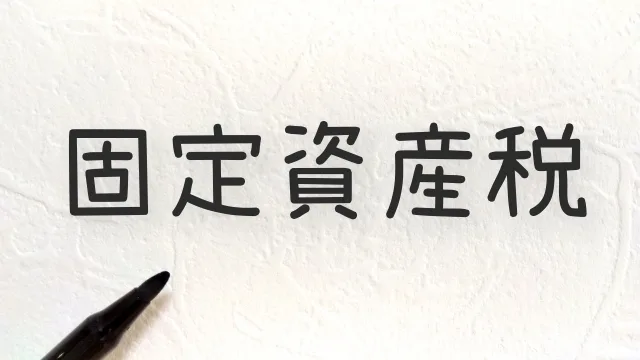 固定資産税